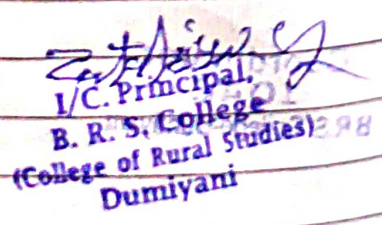 I/C. Principal,
B. R. S. College
(College of Rural Studies)
Dumiyani